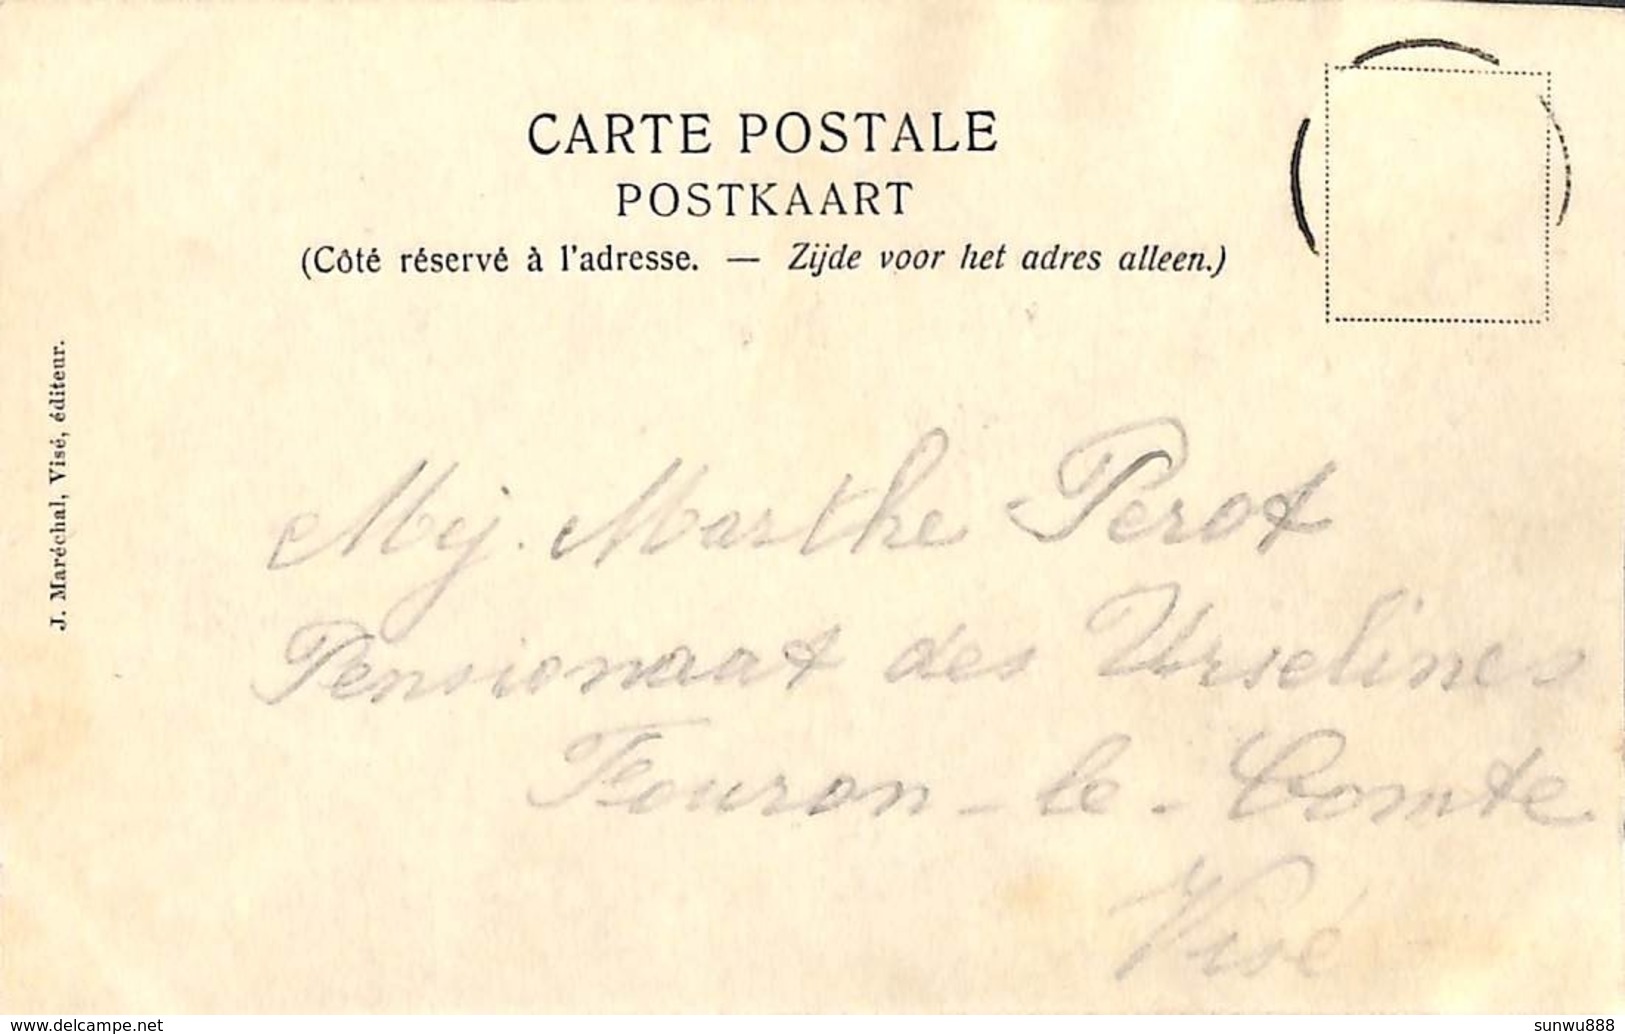 CARTE POSTALE
POSTKAART
(Côté réservé à l'adresse. — Zijde voor het adres alleen.)
J. Maréchal, Visé, éditeur.
Mej. Marthe Perot
Pensionaat des Urselines
Fouron-le-Comte
Visé
delcampe.net
sunwu888